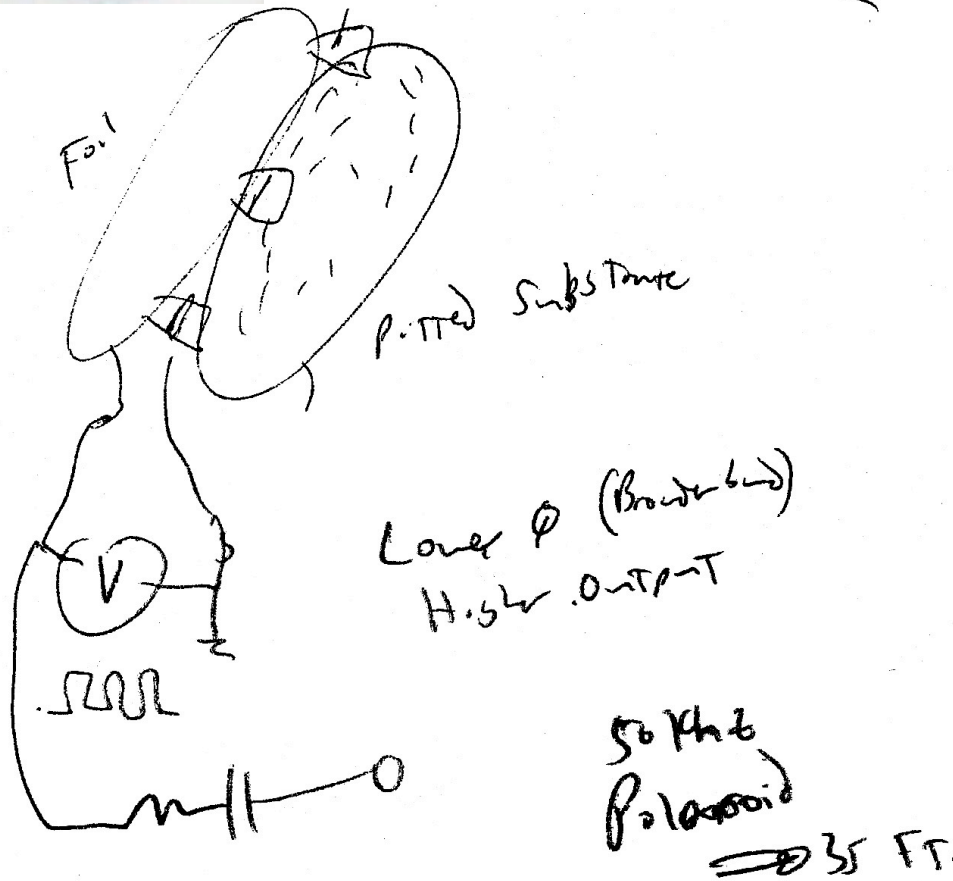 Foil
Pitted Substrate
V
Lower Q (Broader band)
Higher Output
50 Khz
Polaroid
35 FT.